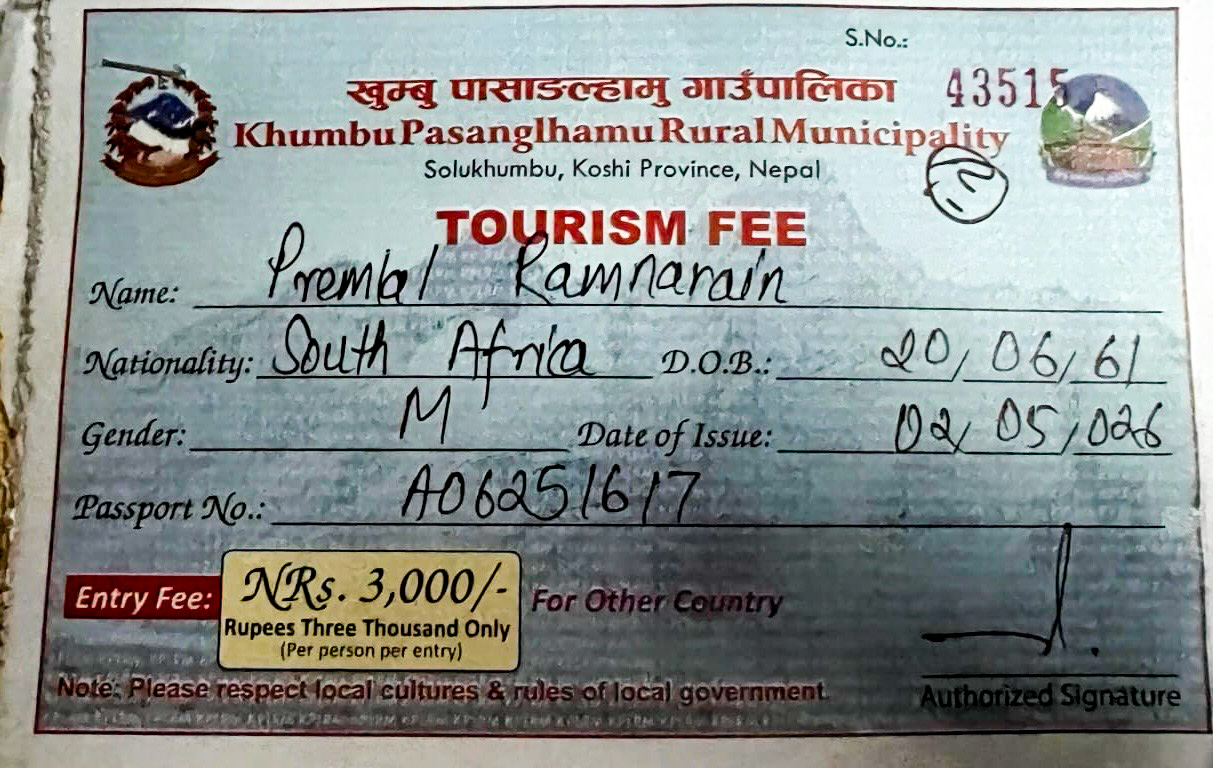 S.No.:
खुम्बु पासाङल्हामु गाउँपालिका 43515
Khumbu Pasanglhamu Rural Municipality
Solukhumbu, Koshi Province, Nepal
2
TOURISM FEE
Name: Prembal Ramnarain
Nationality: South Africa D.O.B.: 20/06/61
Gender: M Date of Issue: 02/05/026
Passport No.: A06251617
Entry Fee: NRs. 3,000/- For Other Country
Rupees Three Thousand Only
(Per person per entry)
Note: Please respect local cultures & rules of local government.
Authorized Signature